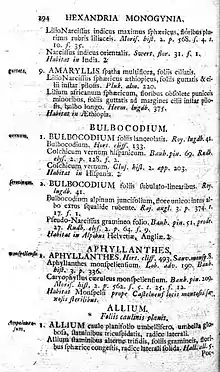 294 HEXANDRIA MONOGYNIA.
LilioNarcissus indicus maximus sphæricus, floribus plurimis rubris liliaceis. Moris. hist. 2. p. 568. s. 4. t.
10. f. 35.
Narcissus indicus orientalis. Swert. flor. 31. f. 1.
Habitat in India. ♃
guttata. 9. AMARYLLIS spatha multiflora, foliis ciliatis.
LilioNarcissus sphæricus æthiopicus, foliis guttatis & ciliis instar pilosis. Pluk. alm. 220.
Lilium africanum sphæricum, floribus obsolete puniceis
minoribus, foliis guttatis ad margines ciliis instar pilosis, bulbo longo. Herm. lugdb. 375.
Habitat in Æthiopia.
BULBOCODIUM.
vernum. 1. BULBOCODIUM foliis lanceolatis. Roy. lugdb. 41.
Bulbocodium. Hort. cliff. 133.
Colchicum vernum hispanicum. Bauh. pin. 69. Rudb.
elys. 2. p. 128. f. 2.
Colchicum vernum. Clus. hist. 2. app. 203.
Habitat in Hispania. ♃
serotinum. 2. BULBOCODIUM foliis subulato-linearibus. Roy.
lugdb. 41.
Bulbocodium alpinum juncifolium, flore unico: intus albo extus squalide rubente. Raj. angl. 3. p. 374. t.
17. f. 1.
Pseudo-Narcissus gramineo folio. Bauh. pin. 51. prodr.
27. Rudb. elys. 2. p. 64. f. 9.
Habitat in Alpibus Helvetiæ, Angliæ. ♃
APHYLLANTHES.
monspeliensis. 1. APHYLLANTHES. Hort. cliff. 493. Sauv. monsp. 8.
Aphyllanthes monspeliensium. Lob. adv. 190. Bauh.
hist. 3. p. 336.
Caryophyllus cæruleus monspeliensium. Bauh. pin. 209.
Moris. hist. 2. p. 562. s. 5. t. 25. f. 12.
Habitat Monspelii prope Castelneuf locis montosis saxosis sterilibus.
ALLIUM.
* Foliis caulinis planis.
1. ALLIUM caule planifolio umbellifero, umbella globosa, staminibus tricuspidatis, radice laterali.
Allium staminibus alterne trifidis, foliis gramineis, floribus sphærice congestis, radice laterali solida. Hall. all. 5.